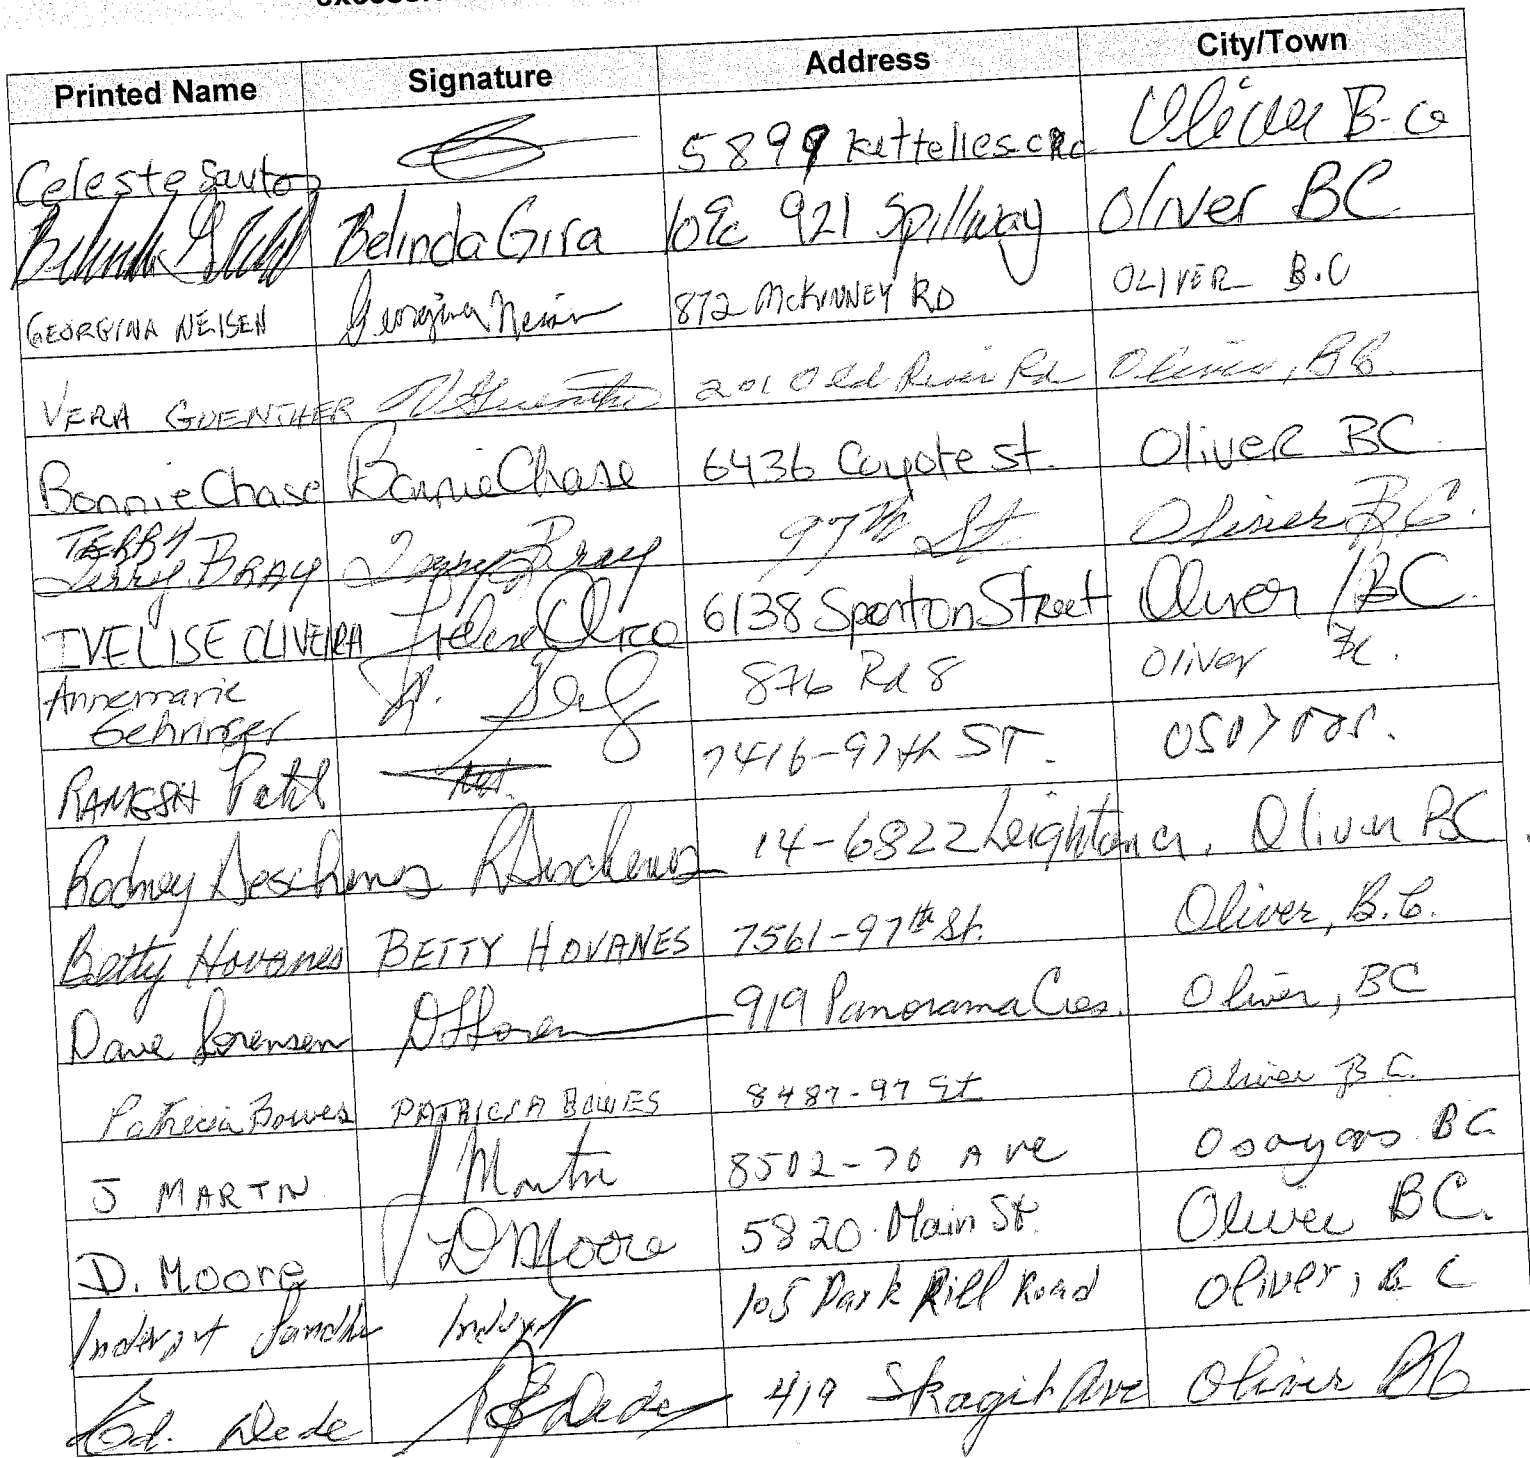 Printed Name Signature Address City/Town
Celeste Santos 5899 Oliver B.C
Belinda Gira 921 Spillway Oliver BC
GEORGINA NEISEN Georgina Neisen 872 McKINNEY RD OLIVER B.C
VERA GUENTHER V Guenther 201 Old River Rd Oliver, BC.
Bonnie Chase Bonnie Chase 6436 Coyote st. Oliver BC.
TERRY
Terry BRAY Terry Bray 97th St Oliver BC.
IVELISE OLIVEIRA 6138 Sparton Street Oliver / BC.
Annemarie 876 Rd 8 Oliver BC.
Gehringer
RAMESH Patel 7416-97th ST.
Rodney Deschenes R Deschenes 14-6822 Leighton Cr. Oliver BC.
Betty Hovanes BETTY HOVANES 7561-97th St. Oliver, B.C.
Dave Sorensen 919 Panorama Cres. Oliver, BC
Patricia Bowes PATRICIA BOWES 8487-97 St Oliver B.C.
J MARTIN J Martin 8502-70 AVE Osoyoos BC
D. Moore D Moore 5820 Main St. Oliver BC.
105 Park Rill Road Oliver, B C
Ed. Dede Dede 419 Skagit Ave Oliver BC